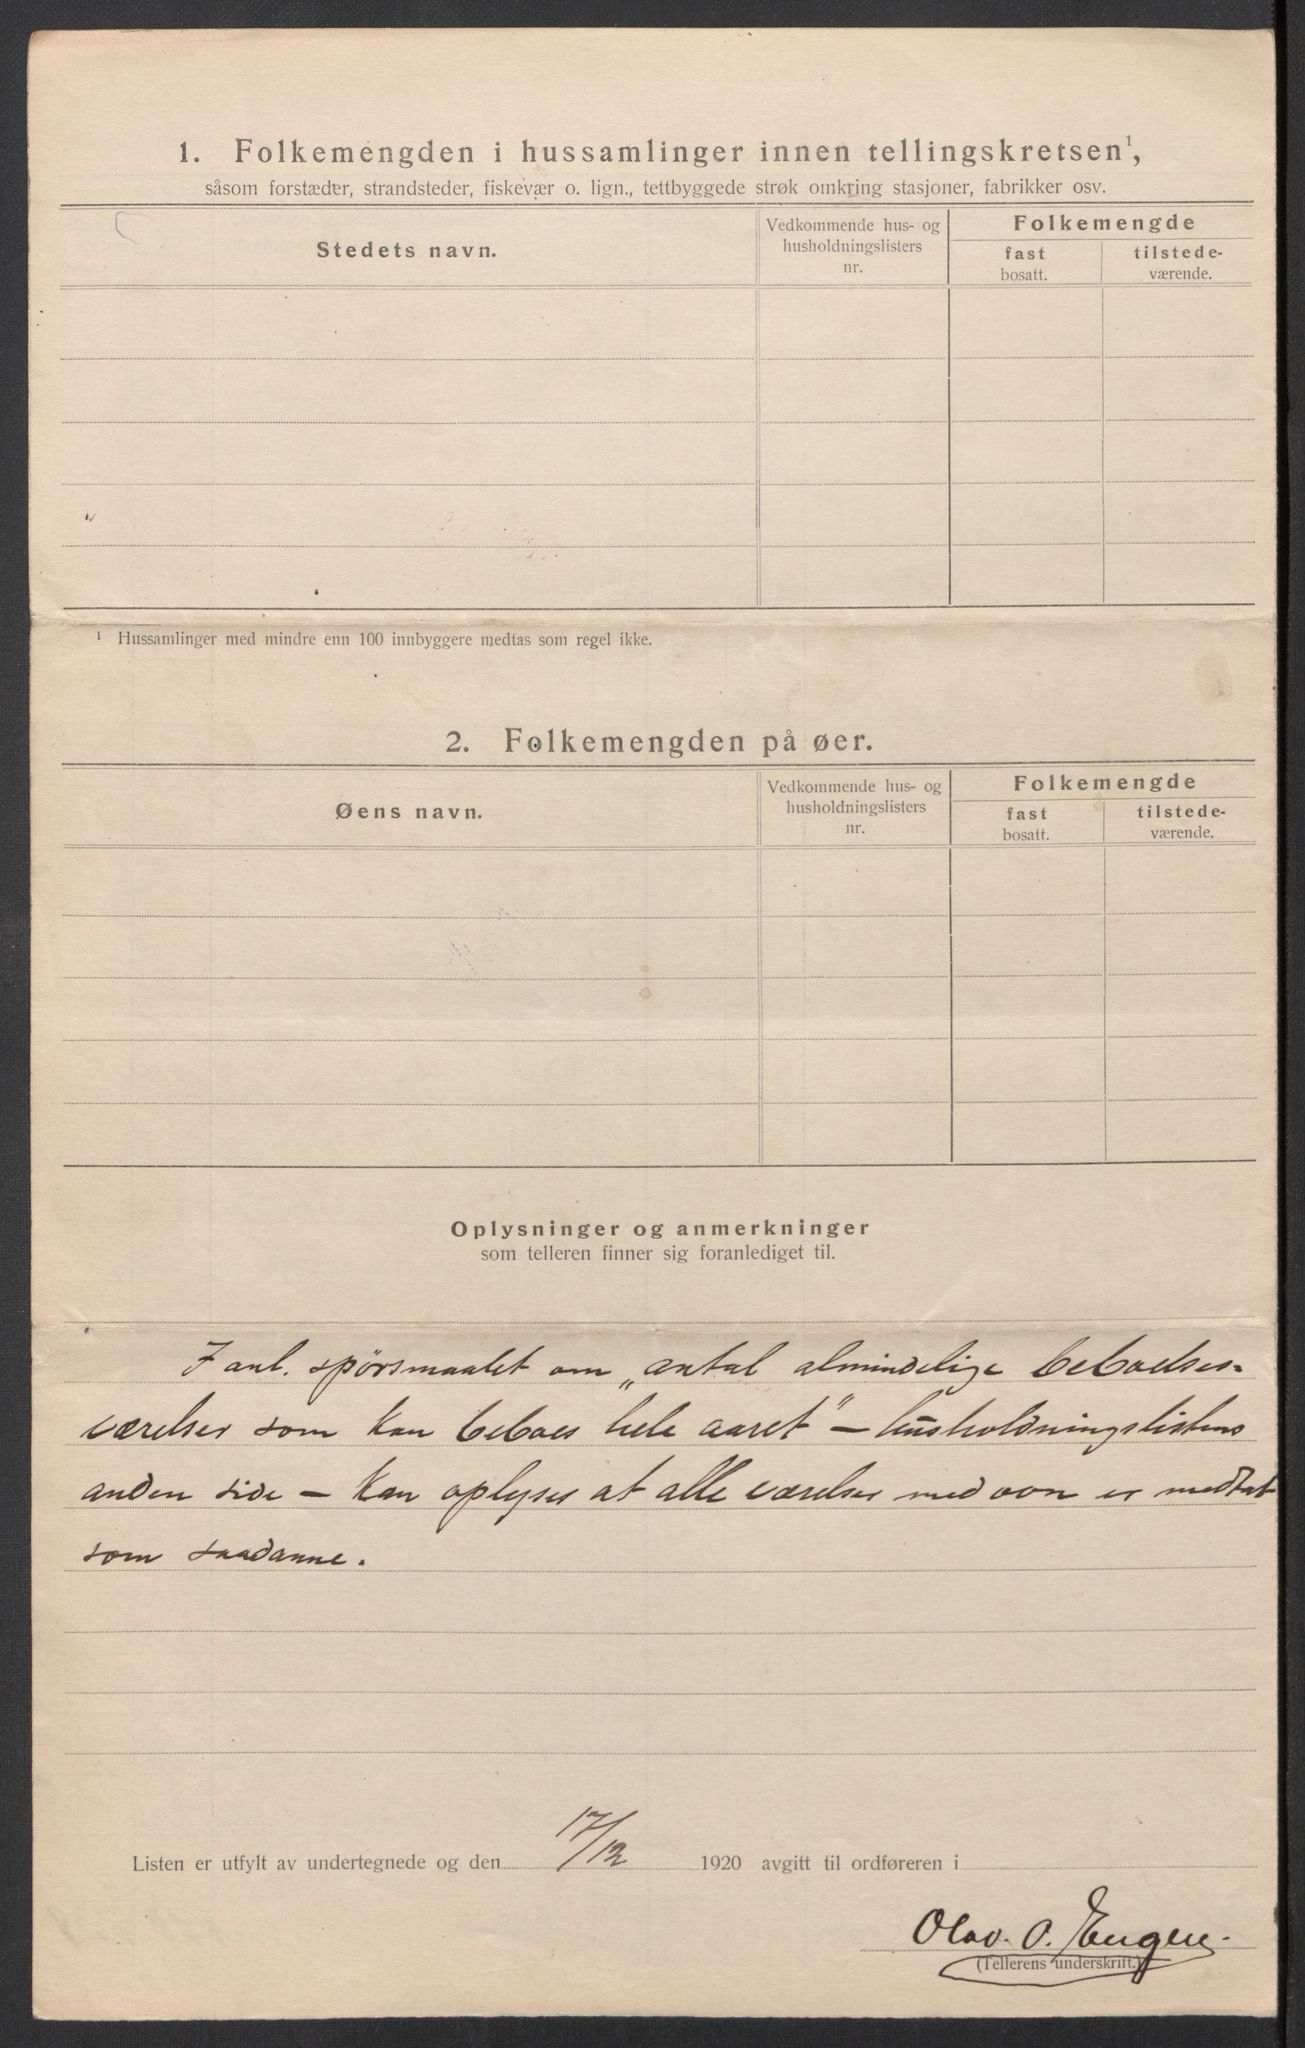 1. Folkemengden i hussamlinger innen tellingskretsen¹,
såsom forstæder, strandsteder, fiskevær o. lign., tettbyggede strøk omkring stasjoner, fabrikker osv.
Stedets navn.
Vedkommende hus- og
husholdningslisters
nr.
Folkemengde
fast
bosatt.
tilstede-
værende.
¹ Hussamlinger med mindre enn 100 innbyggere medtas som regel ikke.
2. Folkemengden på øer.
Øens navn.
Vedkommende hus- og
husholdningslisters
nr.
Folkemengde
fast
bosatt.
tilstede-
værende.
Oplysninger og anmerkninger
som telleren finner sig foranlediget til.
I anl. spørsmaalet om „antal almindelige beboelses-
værelser som kan beboes hele aaret" – husholdningslistens
anden side – kan oplyses at alle værelser med ovn er medtat
som saadanne.
Listen er utfylt av undertegnede og den 17/12 1920 avgitt til ordføreren i
Olav O. Engen.
(Tellerens underskrift.)